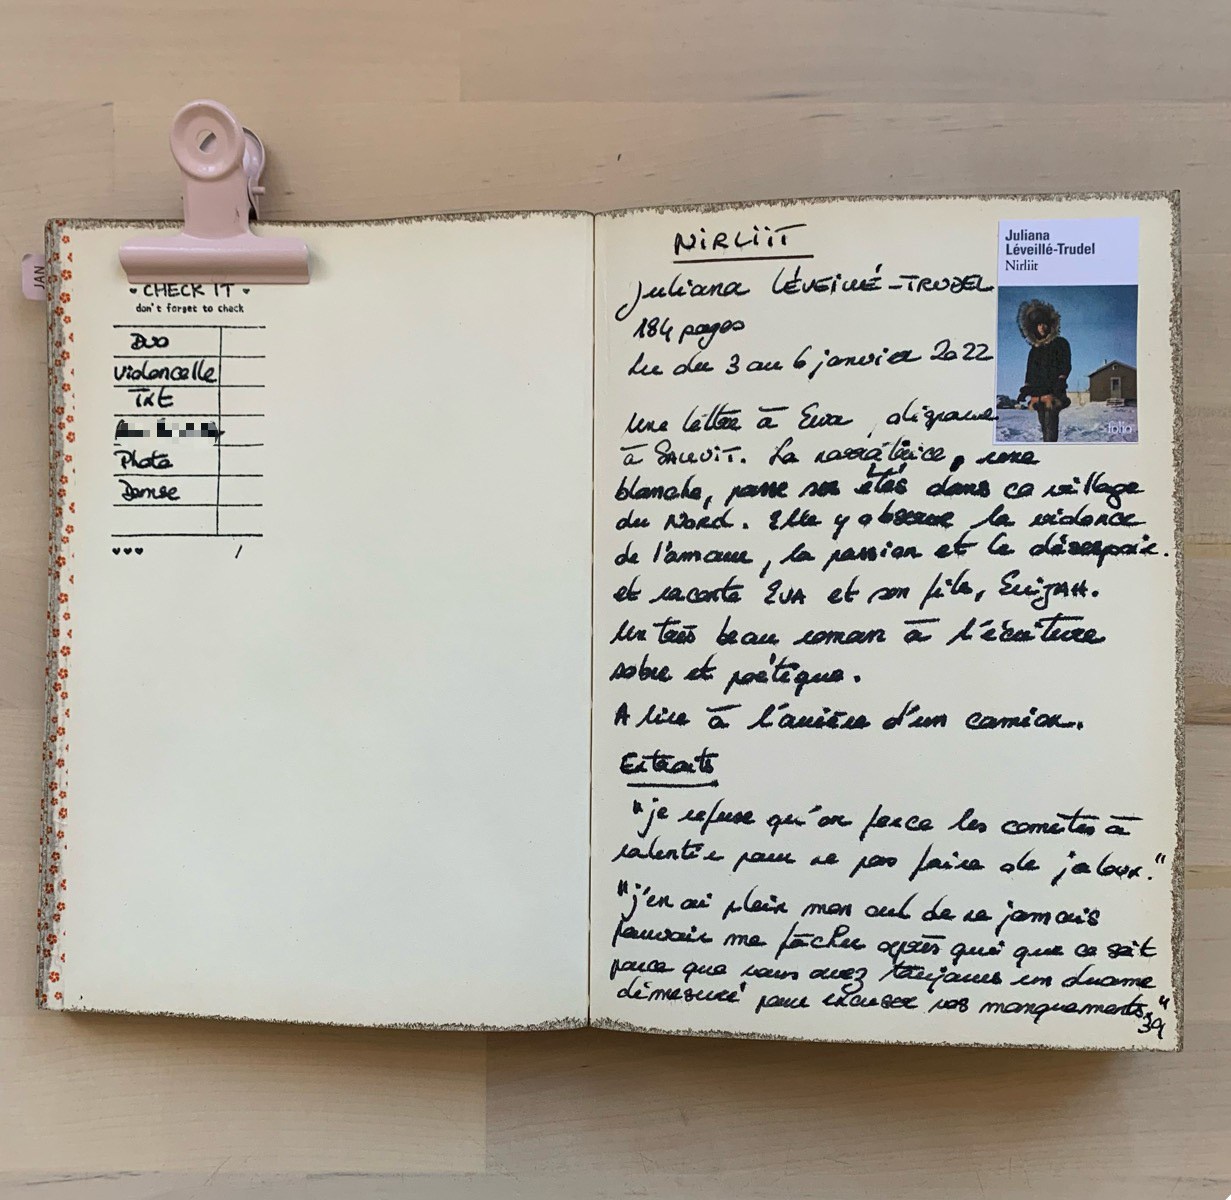 JAN
CHECK IT
don't forget to check
Duo
Violoncelle
TXT
Photo
Danse
♥♥♥ /
NIRLIIT
Juliana LÉVEILLÉ-TRUDEL
184 pages
Lu du 3 au 6 janvier 2022
Juliana
Léveillé-Trudel
Nirliit
folio
Une lettre à Eva, disparue
à SALLUIT. La narratrice, une
blanche, passe ses étés dans ce village
du Nord. Elle y observe la violence
de l'amour, la passion et le désespoir.
et raconte EVA et son fils, ELIJAH.
Un très beau roman à l'écriture
sobre et poétique.
A lire à l'arrière d'un camion.
Extraits
"je refuse qu'on force les comètes à
ralentir pour ne pas faire de jaloux."
"j'en ai plein mon cul de ne jamais
pouvoir me fâcher après qui que ce soit
parce que vous avez toujours un drame
démesuré pour excuser vos manquements."
39